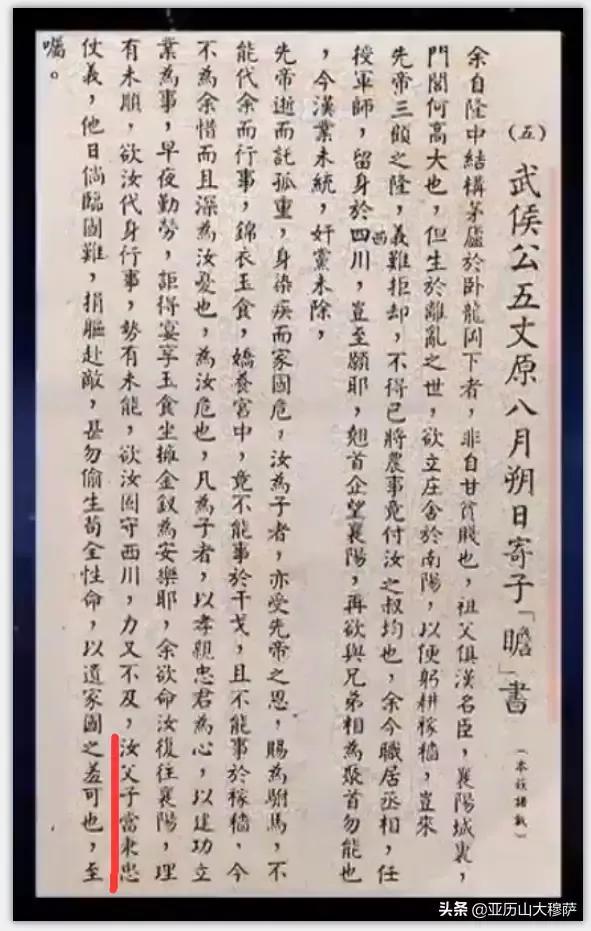 (五)
武侯公五丈原八月朔日寄子「瞻」書(本族譜載)
余自隆中結構茅廬於卧龍岡下者，非自甘貧賤也，祖父俱漢名臣，襄陽城裏，
門閭何高大也，但生於離亂之世，欲立庄舍於南陽，以便躬耕稼穡，豈來
先帝三顧之隆，義難拒却，不得已將農事竟付汝之叔均也，余今職居丞相，任
授軍師，留身於四川，豈至願耶，翹首企望襄陽，再欲與兄弟相為聚首勿能也
西
，今漢業未統，奸黨未除，
先帝逝而託孤重，身染疾而家國危，汝為子者，亦受先帝之恩，賜為駙馬，不
能代余而行事，錦衣玉食，嬌養宮中，竟不能事於干戈，且不能事於稼穡，今
不為余惜而且深為汝憂也，為汝危也，凡為子者，以孝親忠君為心，以建功立
業為事，早夜勤勞，詎得宴享玉食坐擁金釵為安樂耶，余欲命汝復往襄陽，理
有未順，欲汝代身行事，勢有未能，欲汝固守西川，力又不及，汝父子當秉忠
仗義，他日倘臨國難，捐軀赴敵，甚勿偷生苟全性命，以遺家國之羞可也，至
囑。
头条 @亚历山大穆萨